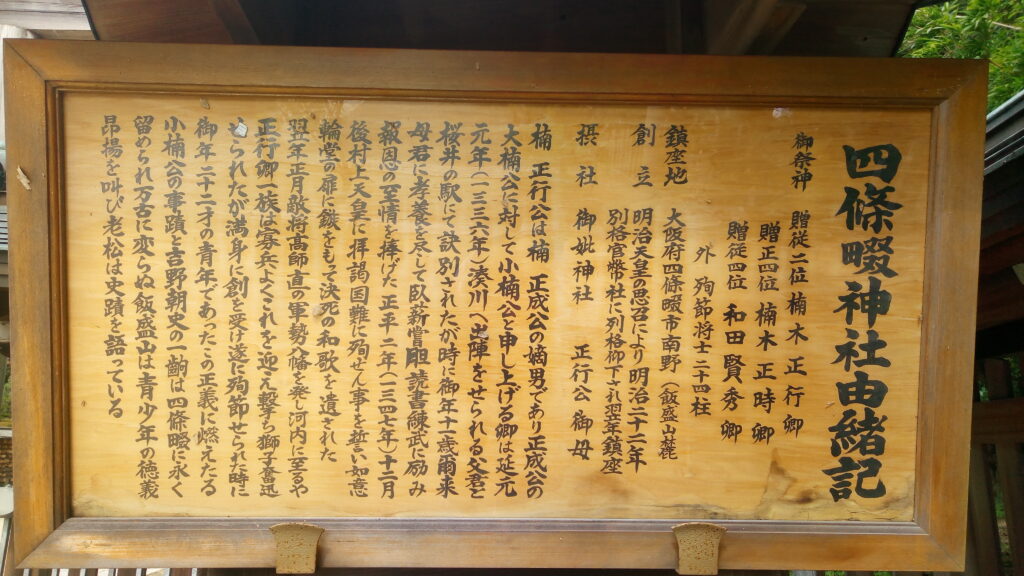 四條畷神社由緒記
御祭神 贈従二位 楠木正行卿
贈正四位 楠木正時卿
贈従四位 和田賢秀卿
外 殉節将士二十四柱
鎮座地 大阪府四條畷市南野(飯盛山麓)
創立 明治天皇の思召により明治二十二年
別格官幣社に列格仰下され翌年鎮座
摂社 御妣神社 正行公御母
楠 正行公は楠 正成公の嫡男であり正成公の
大楠公に対して小楠公と申し上げる卿は延元
元年(一三三六年)湊川へ出陣をせられる父君と
桜井の駅にて訣別されたが時に御年十一歳爾来
母君に孝養を尽して臥薪嘗胆 読書練武に励み
報恩の至情を捧げた 正平二年(一三四七年)十二月
後村上天皇に拝謁国難に殉せん事を誓い如意
輪堂の扉に鏃をもって決死の和歌を遺された
翌年正月敵将高師直の軍勢八幡を発し河内に至るや
正行卿一族は寡兵よくこれを迎え撃ち獅子奮迅
せられたが満身に創を受け遂に殉節せられた時に
御年二十二才の青年であったこの正義に燃えたる
小楠公の事蹟と吉野朝史の一齣は四條畷に永く
留められ万古に変らぬ飯盛山は青少年の徳義
昂揚を叫び老松は史蹟を語っている